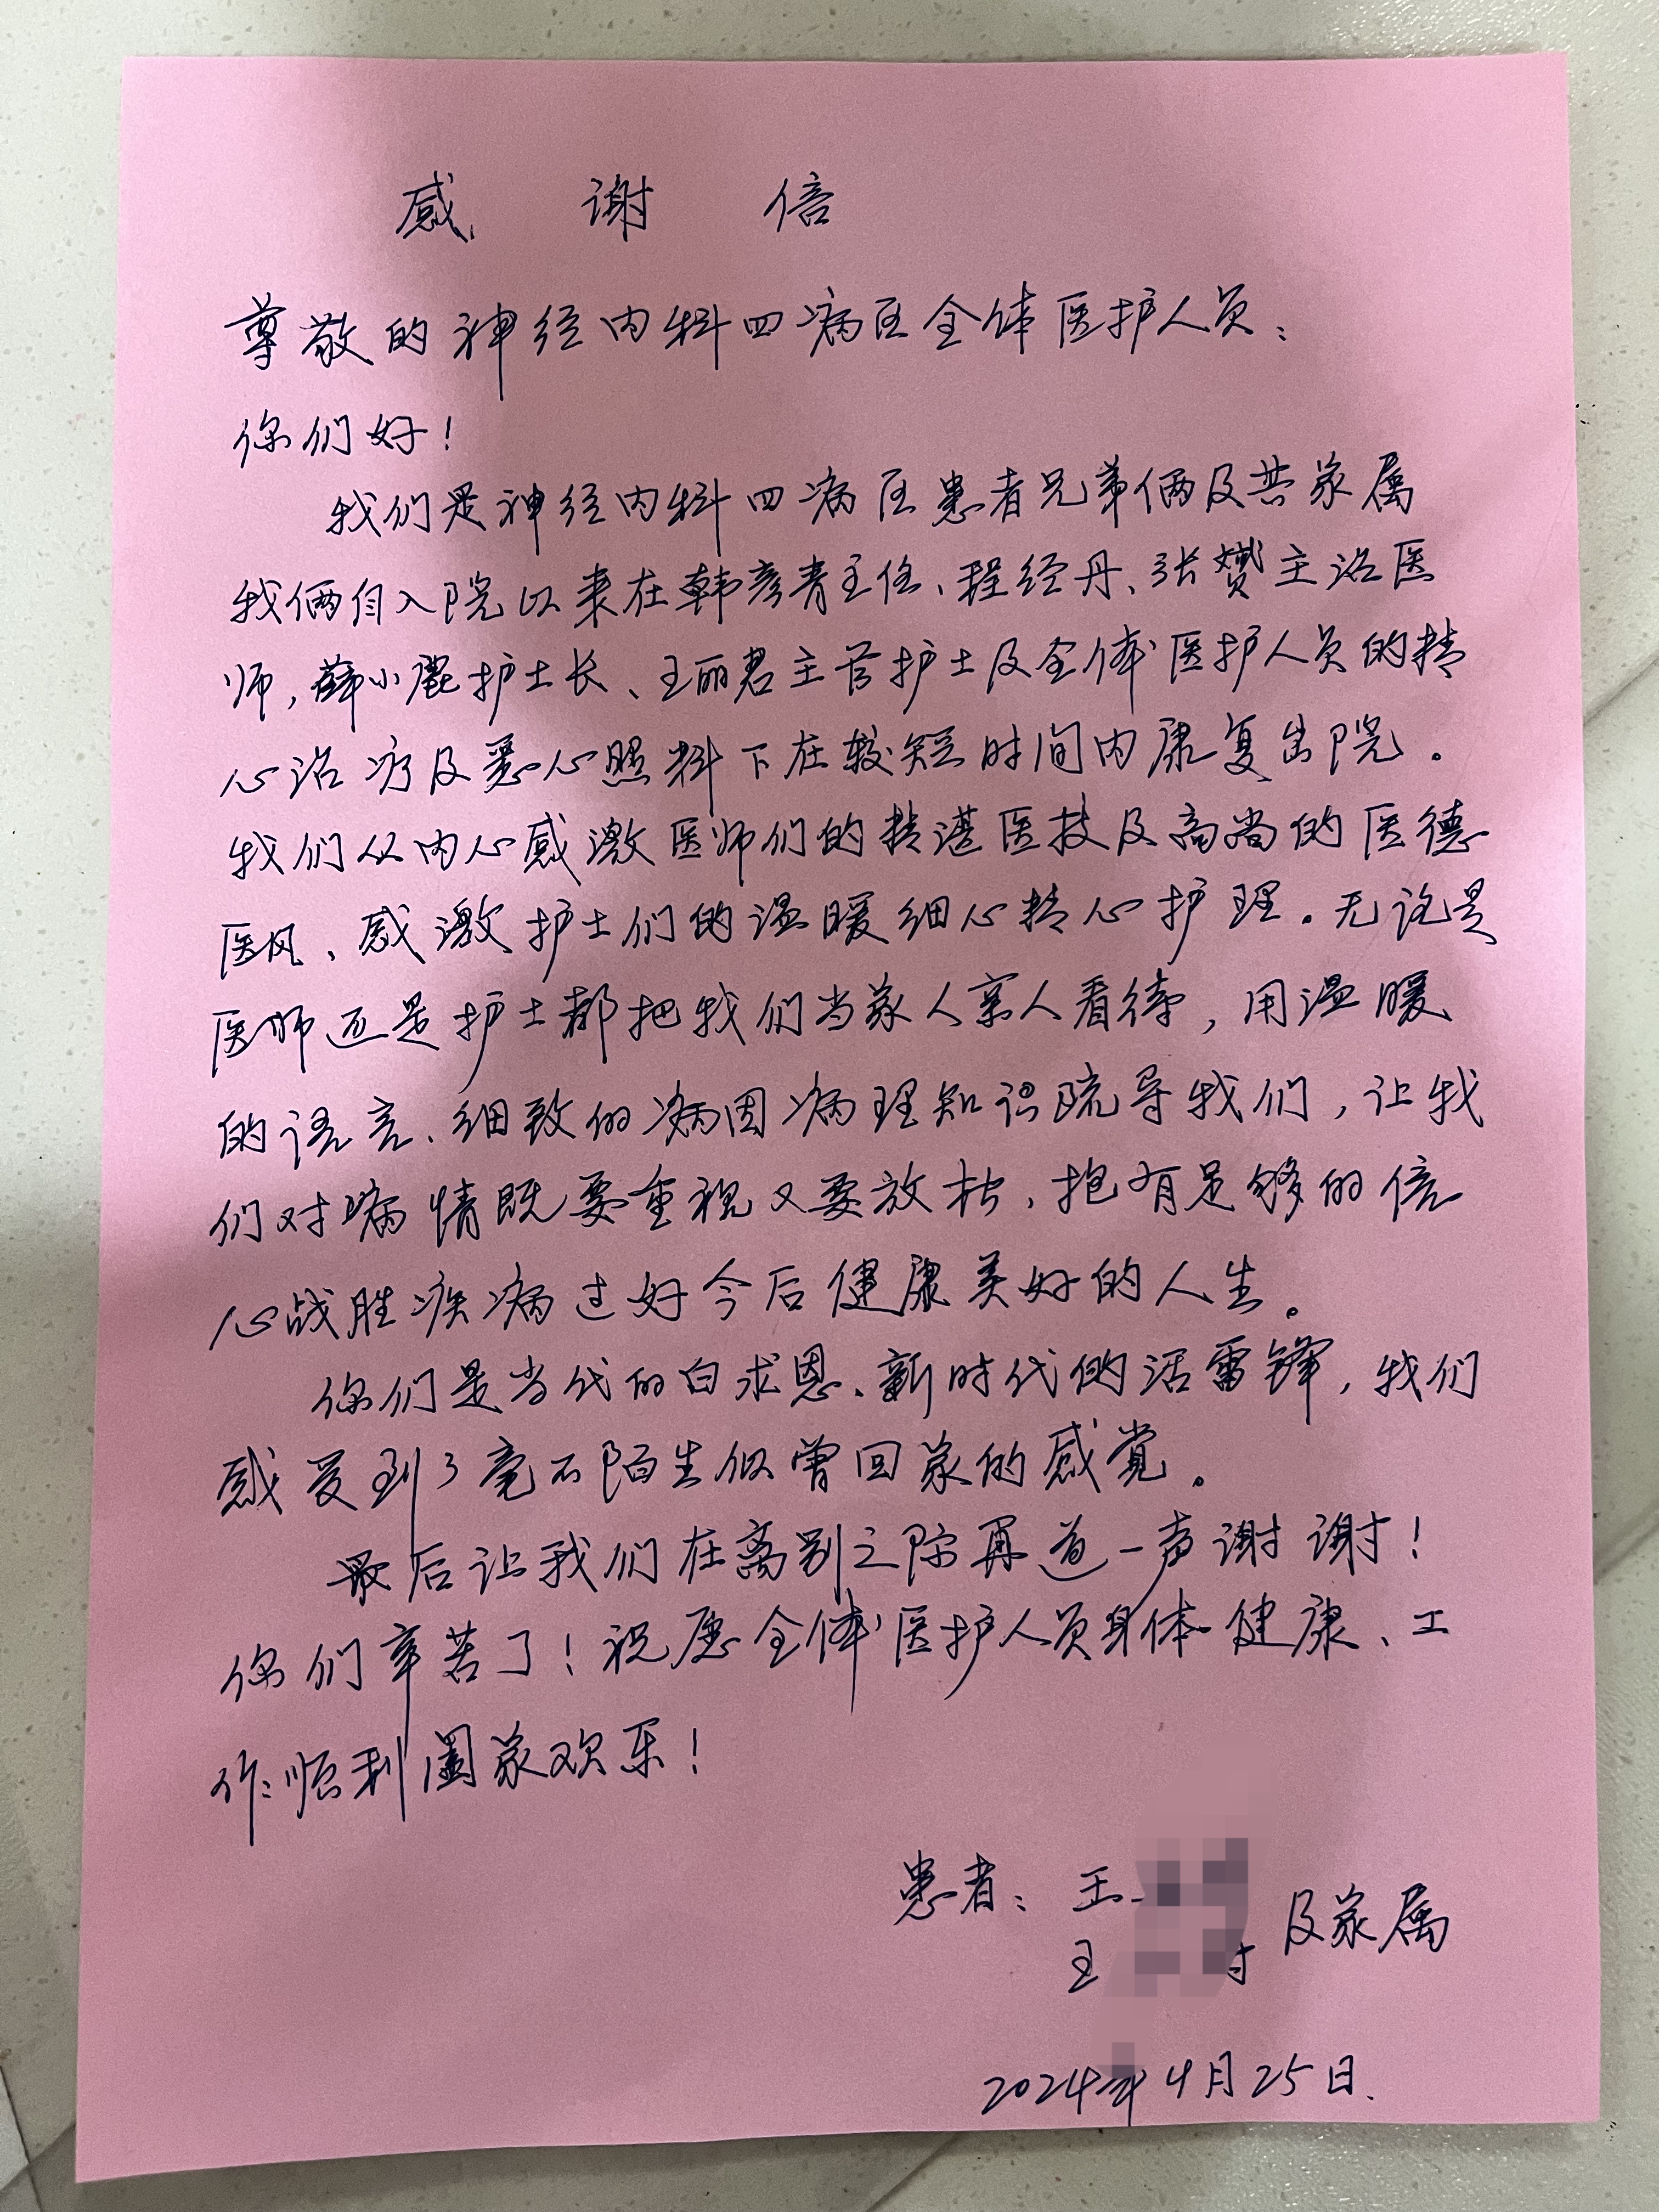 感谢信
尊敬的神经内科四病区全体医护人员：
你们好！
我们是神经内科四病区患者兄弟俩及其家属
我俩自入院以来在韩彦青主任、程经丹、张赟主治医
师，薛小鹿护士长、王丽君主管护士及全体医护人员的精
心治疗及悉心照料下在较短时间内康复出院。
我们从内心感激医师们的精湛医技及高尚的医德
医风、感激护士们的温暖细心精心护理。无论是
医师还是护士都把我们当家人亲人看待，用温暖
的语言、细致的病因病理知识疏导我们，让我
们对病情既要重视又要放松，抱有足够的信
心战胜疾病过好今后健康美好的人生。
你们是当代的白求恩、新时代的活雷锋，我们
感受到了毫不陌生似曾回家的感觉。
最后让我们在离别之际再道一声谢谢！
你们辛苦了！祝愿全体医护人员身体健康、工
作顺利阖家欢乐！
患者：王
王 及家属
2024年4月25日.